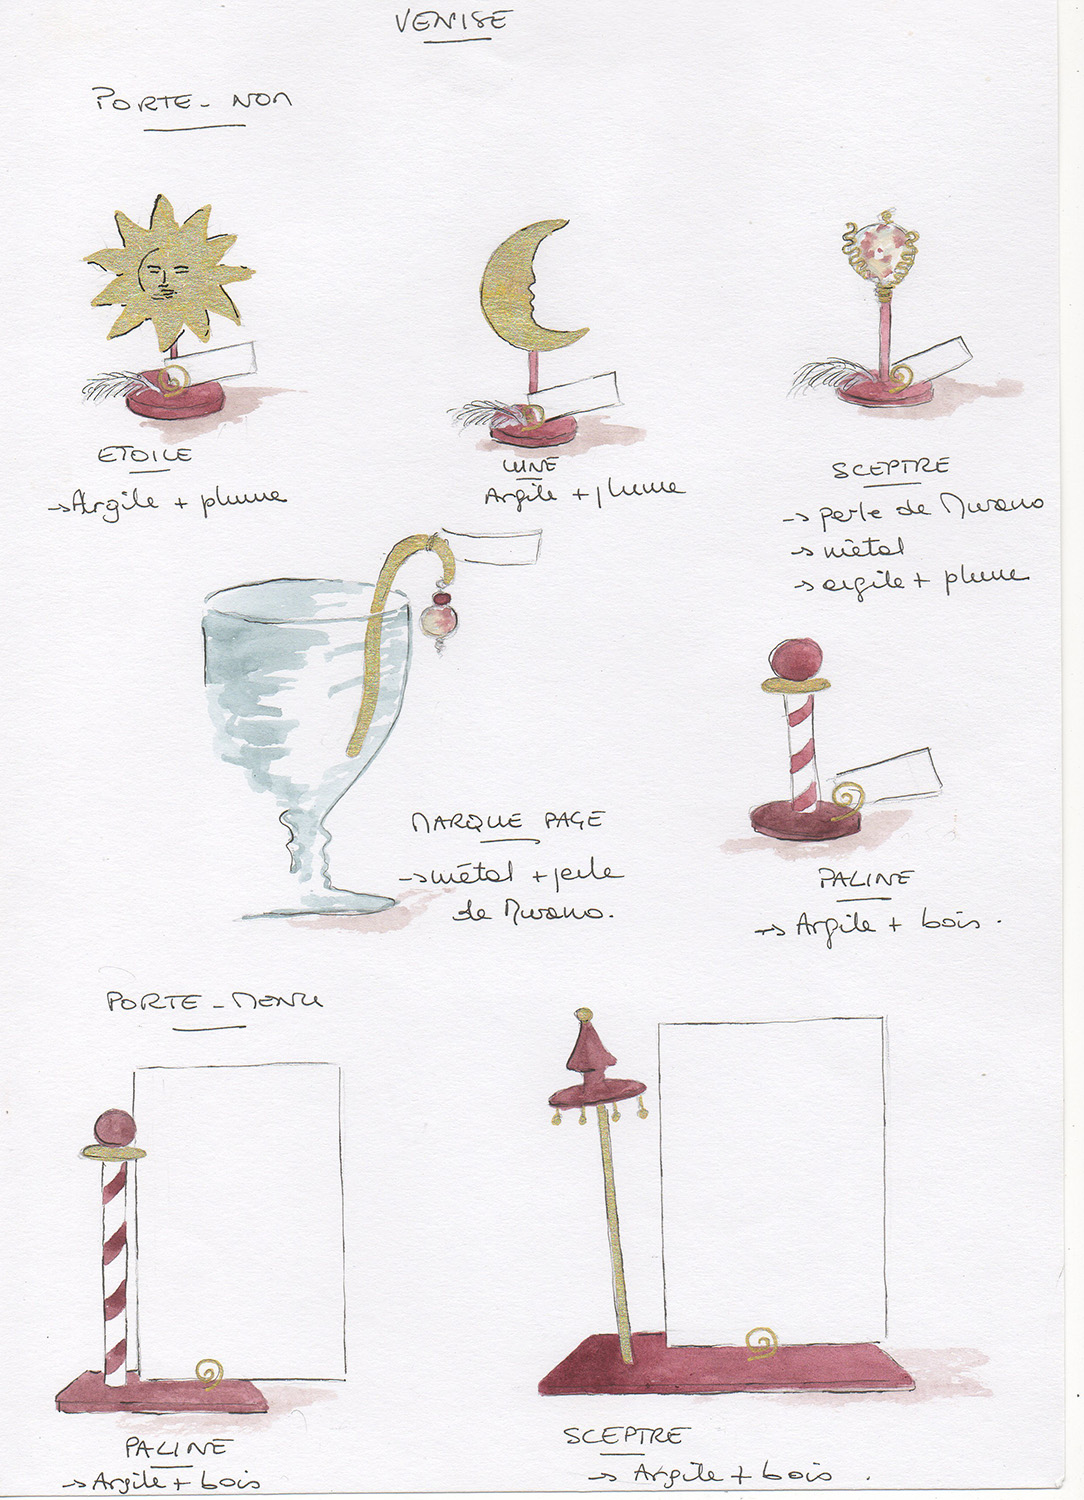 VENISE
PORTE-NOM
ETOILE
→ Argile + plume
LUNE
Argile + plume
SCEPTRE
→ perle de Murano
→ métal
→ argile + plume
MARQUE PAGE
→ métal + perle
de Murano.
PALINE
→ Argile + bois.
PORTE-MENU
PALINE
→ Argile + bois
SCEPTRE
→ Argile + bois.